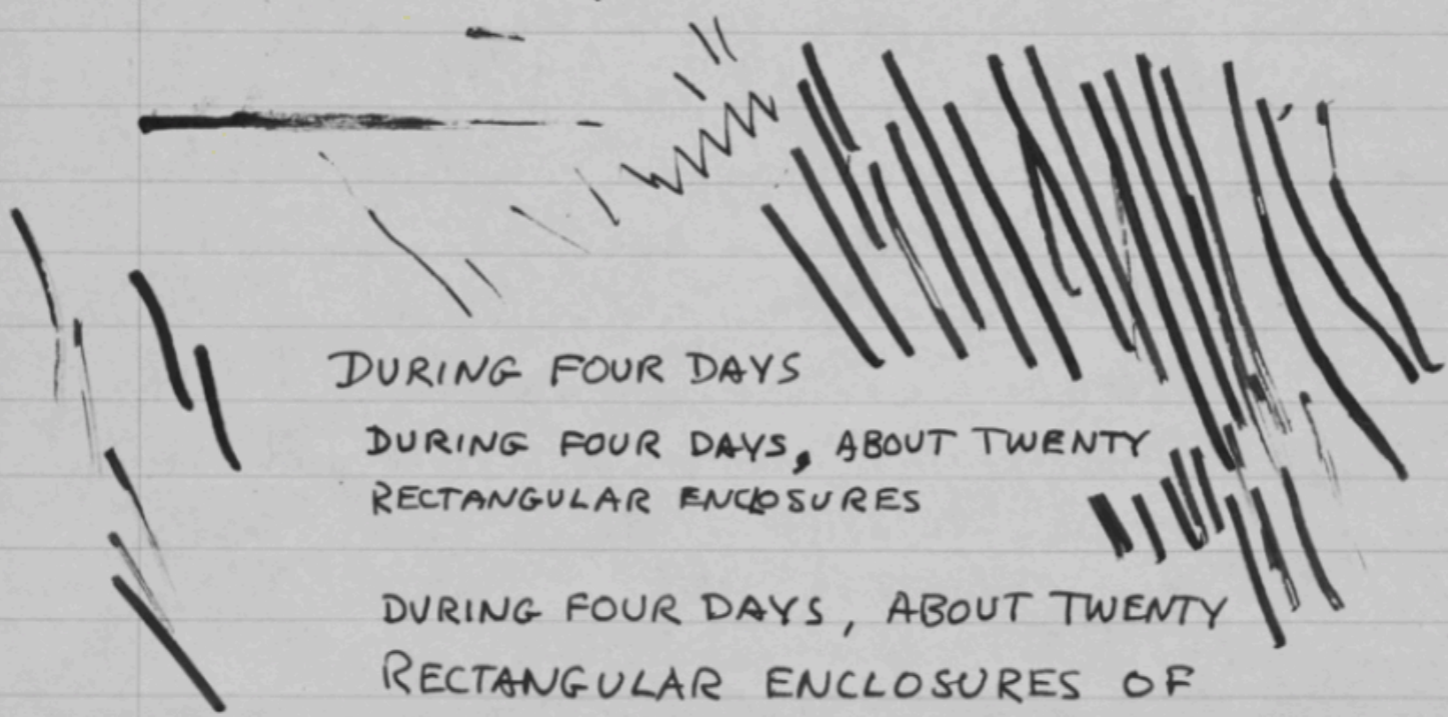 DURING FOUR DAYS
DURING FOUR DAYS, ABOUT TWENTY
RECTANGULAR ENCLOSURES
DURING FOUR DAYS, ABOUT TWENTY
RECTANGULAR ENCLOSURES OF